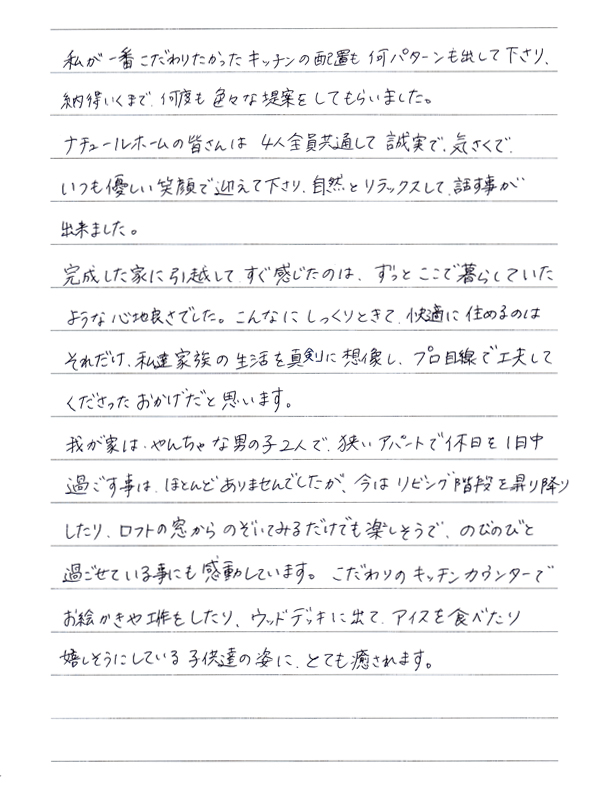 私が一番こだわりたかったキッチンの配置も何パターンも出して下さり、
納得いくまで、何度も色々な提案をしてもらいました。
ナチュールホームの皆さんは4人全員共通して誠実で、気さくで、
いつも優しい笑顔で迎えて下さり、自然とリラックスして、話す事が
出来ました。
完成した家に引越して、すぐ感じたのは、ずっとここで暮らしていた
ような心地良さでした。こんなにしっくりときて、快適に住めるのは
それだけ、私達家族の生活を真剣に想像し、プロ目線で工夫して
くださったおかげだと思います。
我が家は、やんちゃな男の子2人で、狭いアパートで休日を1日中
過ごす事は、ほとんどありませんでしたが、今はリビング階段を昇り降り
したり、ロフトの窓からのぞいてみるだけでも楽しそうで、のびのびと
過ごせている事にも感動しています。こだわりのキッチンカウンターで
お絵かきや工作をしたり、ウッドデッキに出て、アイスを食べたり
嬉しそうにしている子供達の姿に、とても癒されます。